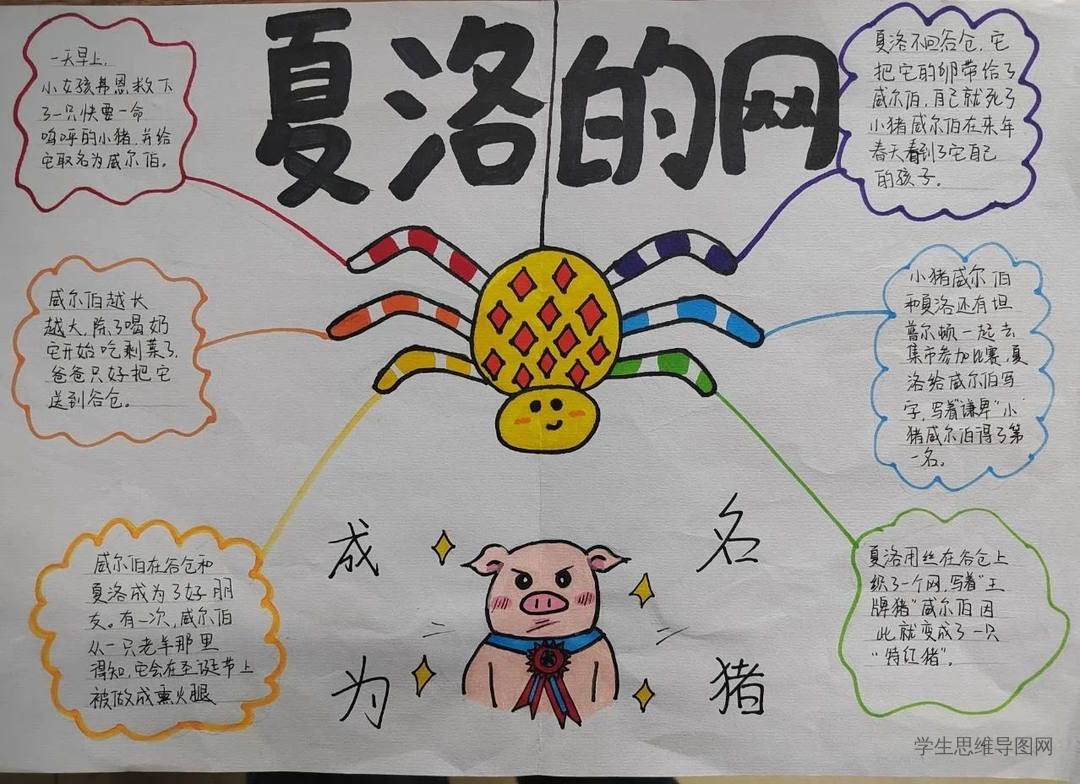 夏洛的网
一天早上,
小女孩弗恩救下
了一只快要一命
呜呼的小猪,并给
它取名为威尔伯。
威尔伯越长
越大,除了喝奶
它开始吃剩菜了,
爸爸只好把它
送到谷仓。
威尔伯在谷仓和
夏洛成为了好朋
友。有一次,威尔伯
从一只老羊那里
得知,它会在圣诞节上
被做成熏火腿
夏洛用丝在谷仓上
织了一个网,写着"王
牌猪"威尔伯因
此就变成了一只
"特红猪"。
小猪威尔伯
和夏洛还有坦
普尔顿一起去
集市参加比赛,夏
洛给威尔伯写
字,写着"谦卑"小
猪威尔伯得了第
一名。
夏洛不回谷仓,它
把它的卵带给了
威尔伯,自己就死了
小猪威尔伯在来年
春天看到了它自己
的孩子。
成 名
为 猪
学生思维导图网